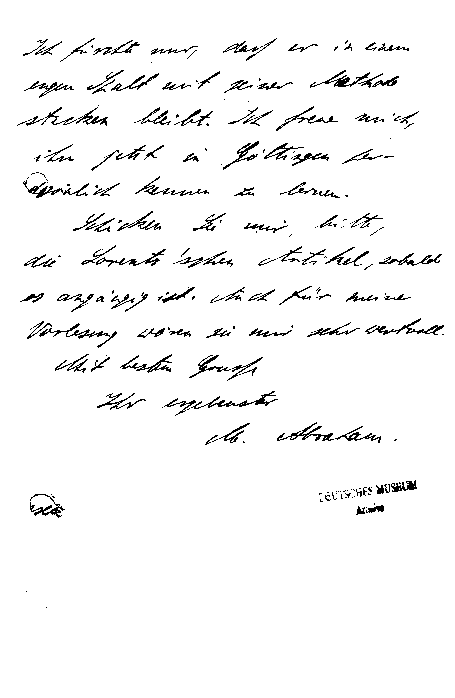 Ich fürchte nur, daß er in einem
engen Spalt mit seiner Methode
stecken bleibt. Ich freue mich,
ihn jetzt in Göttingen per-
sönlich kennen zu lernen.
Schicken Sie mir, bitte,
die Lorentz'schen Artikel, sobald
es angängig ist. Auch für meine
Vorlesung wären sie mir sehr wertvoll.
Mit bestem Gruße
Ihr ergebenster
M. Abraham.
DEUTSCHES MUSEUM
Archiv